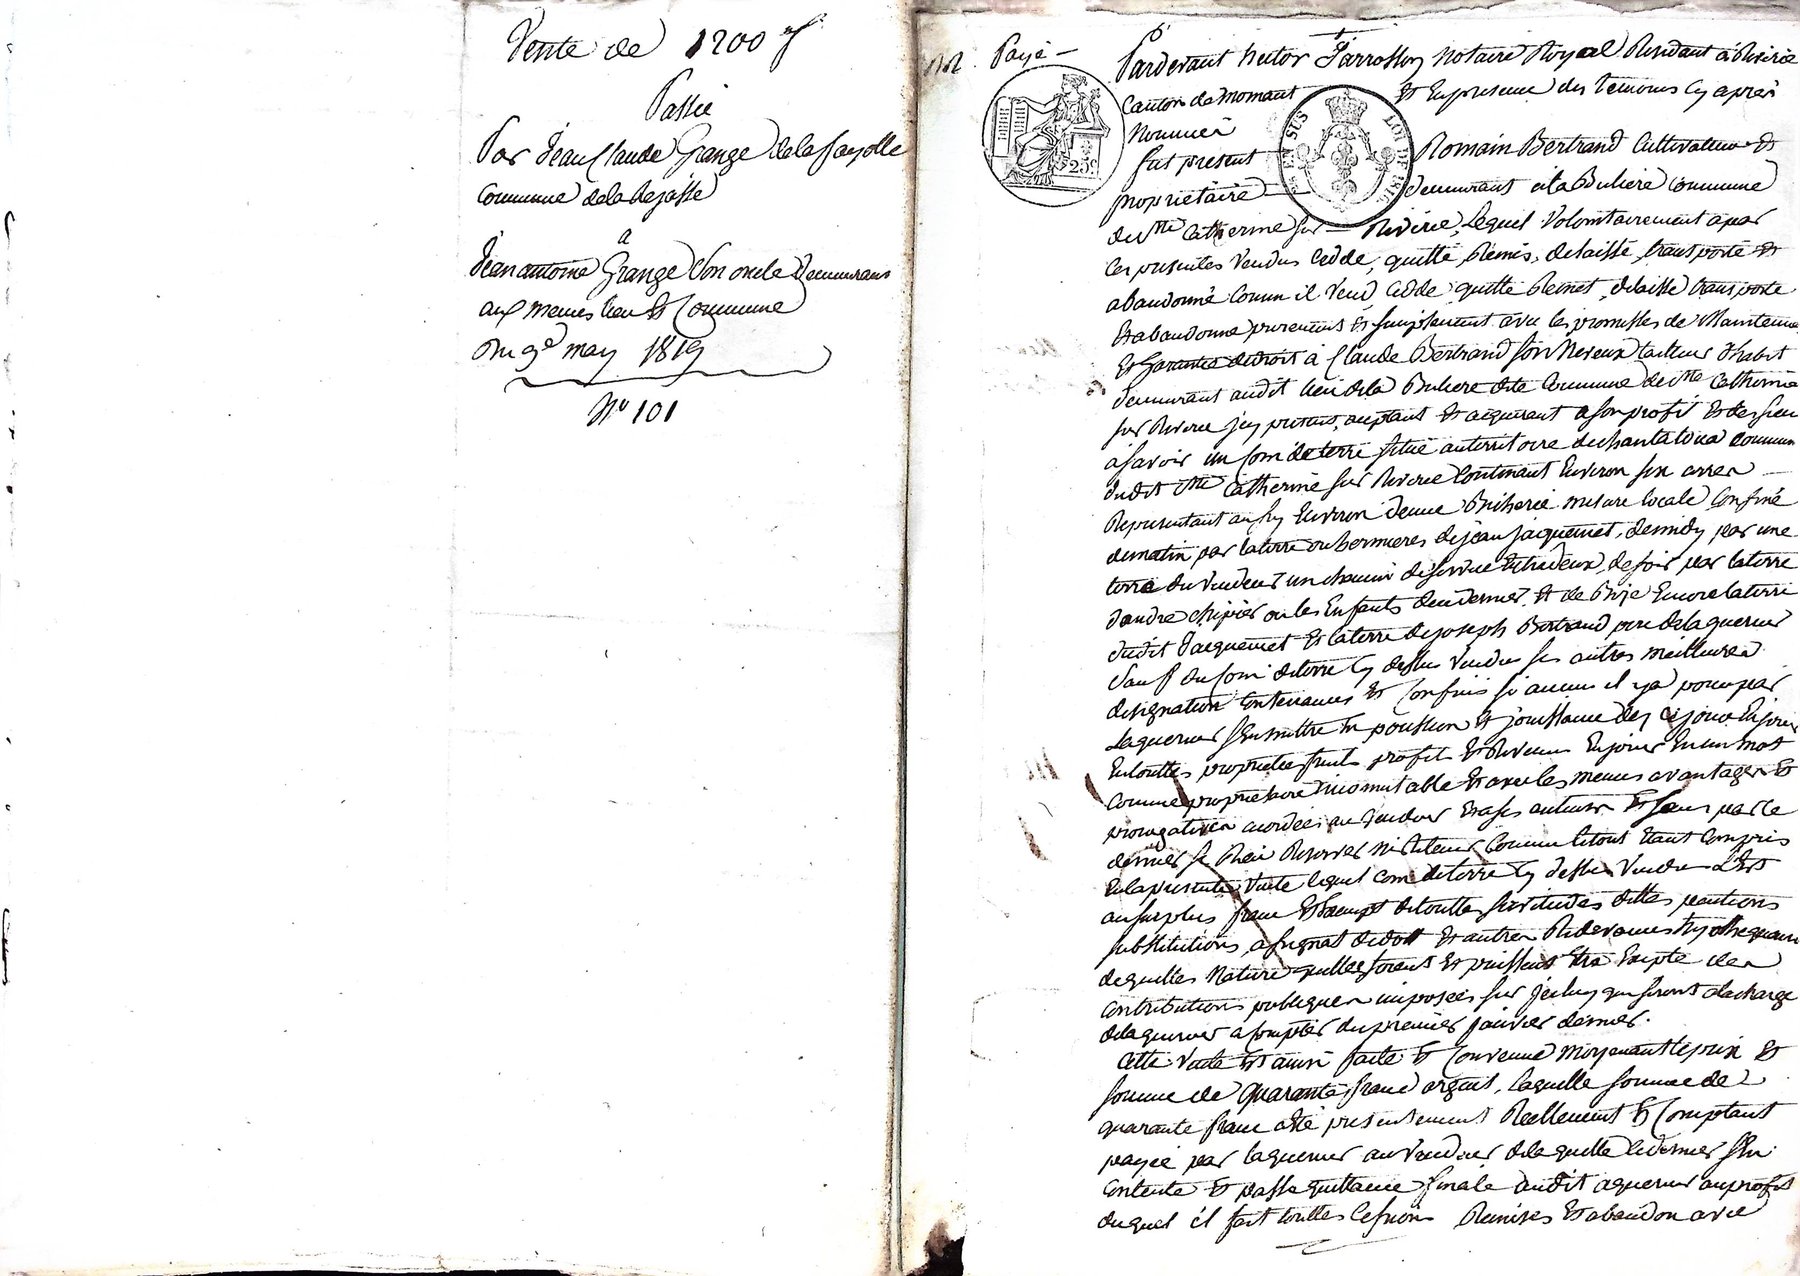 Vente de 1200 f
Passée
Par Jean Claude Grange de la fayolle
Commune de la Rejasse
a
Jean antoine Grange Son oncle Demeurans
aux memes lieu et Commune
Du 9e may 1819
No 101
Payé
Pardevant hector Notaire Royal Residant à Riverie
Canton de Mornant Et En presence des temoins Cy après
Nommés
25c.
EN SUS
LOI DE
fut present Romain Bertrand Cultivateur et
propriétaire demeurant à la Buliere Commune
de Ste Catherine sur Riverie, Lequel Volontairement a par
Ces presentes Vendu Cédé, quitté Remis, delaissé, transporté et
abandonné Comm il Vend Cedde quitte Remet, delaisse transporte
Et abandonne purement et simplement avec les promesses de Maintenue
Et Garantie de droit à Claude Bertrand Son Neveux tailleur d'habit
demeurant audit lieu de la Buliere dite Commune de Ste Catherine
sur Riverie Jcy present, aceptant et aiquerant a son profit et des siens
a savoir un Coin de terre Situé au territoire de Commune
dudit Ste Catherine sur Riverie Contenant Environ six arres
Representant Environ demie Bicherie mesure locale Confiné
de matin par la terre ou hermieres de jean jaquemet, de midy par une
terre du Vendeur un chemin de Entredeux, de soir par la terre
d'andré chipier ou les Enfants de ce dernier et de Bize Encore la terre
dudit Jacquemet et la terre de joseph Bertrand pere de laquereur
Sauf du Coin de terre Cy dessus Vendu ses autres meilleures
designation Contenances et Confins si aucuns il y a pour par
Laquereur s'En mettre En possession et jouissance des ce jour En jouir
En touttes proprietés fruits profits et Revenus En jouir En un mot
Comme proprietaire incomutable et avec les memes avantages et
prerogatives acordées au Vendeur et a ses auteurs et sans par ce
dernier se Rien Reserver ni Retenir Comme le tout Etant Compris
En la presente Vente lequel Coin de terre Cy dessus Vendu Est
au surplus franc et Exempt de touttes servitudes dettes pentions
substitutions, assignat de dot et autres Redevances hypothequaires
de quelles Nature quelles soient et puissent Etre Exepté des
Contributions publiques imposées sur jceluy qui seront a la charge
de laquereur à Compter du premier janvier dernier.
Cette Vente Est ainsi faite et Convenue Moyenant le prix et
somme de quarante franc argent, laquelle somme de
quarante franc a eté presentement Reellement et Comptant
payée par laquereur au Vendeur de laquelle ce dernier sEn
Contente et passe quittance finale audit aquereur au profit
duquel il fait touttes Cessions Remises et abandon avec